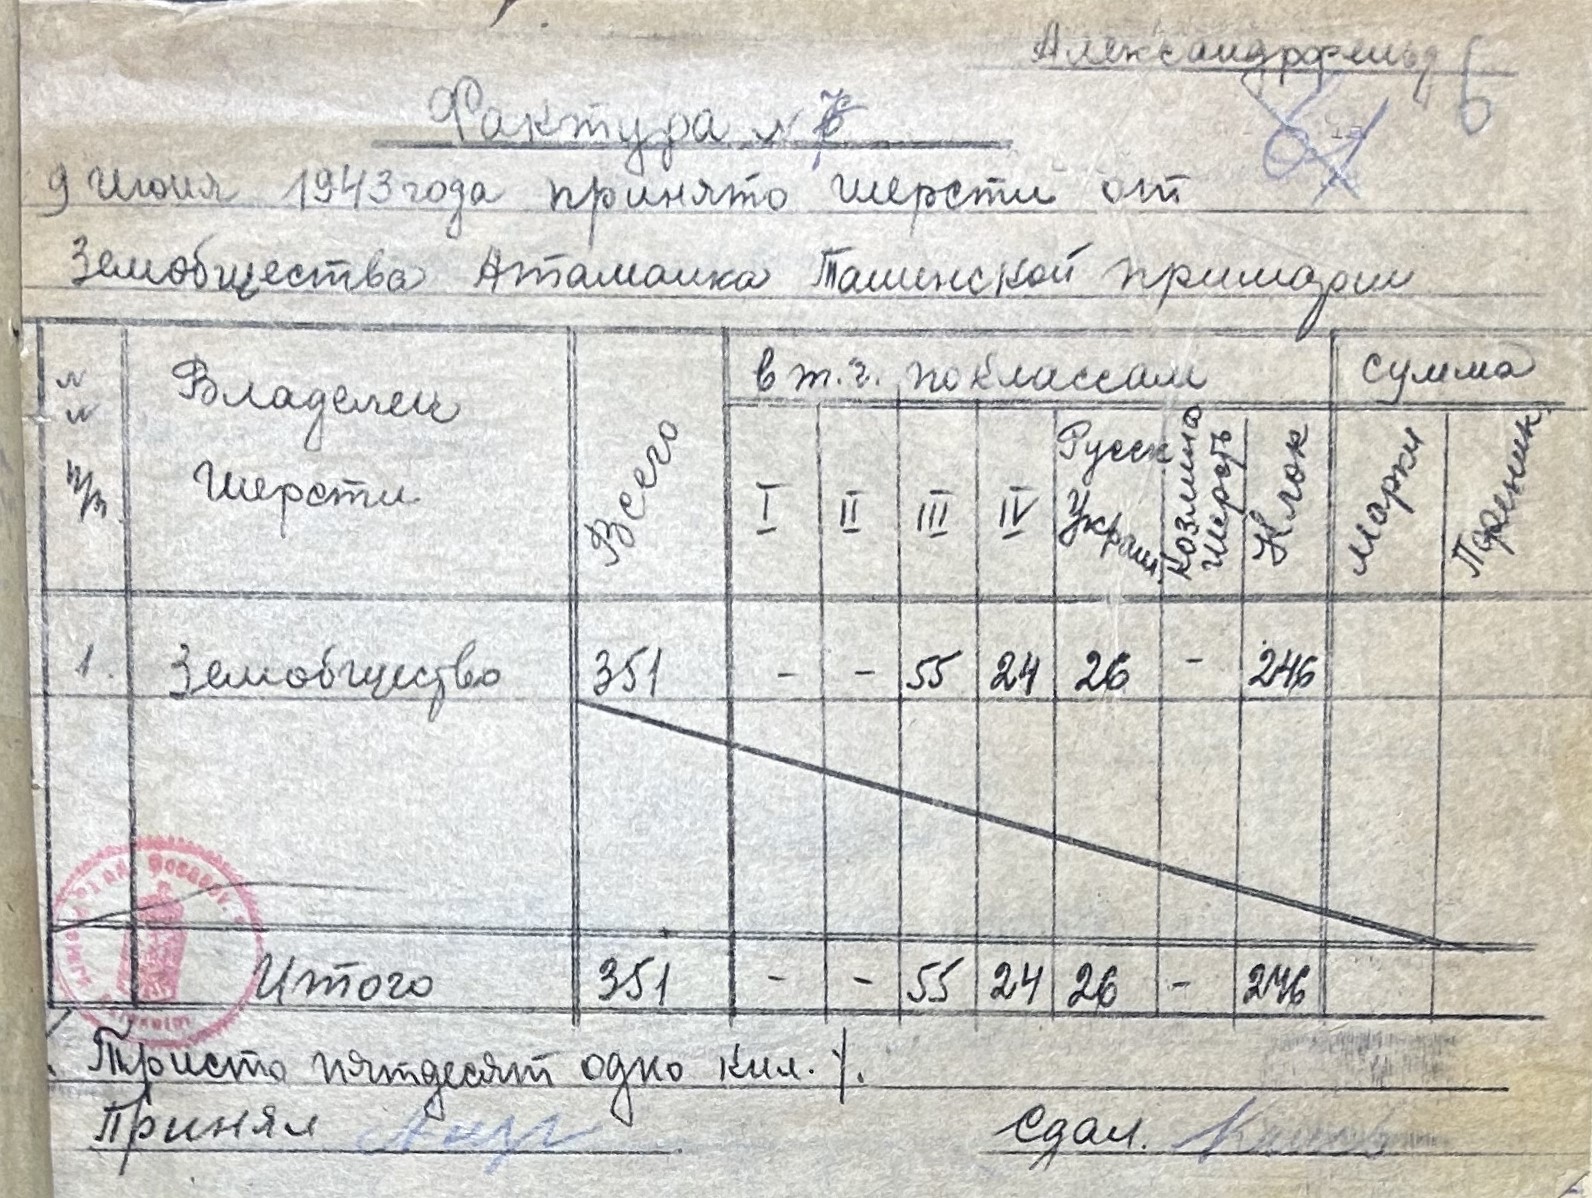 Александрфельд 6
Фактура №
9 Июня 1943 года принято шерсти от
Земобщества Атаманка Ташинской примарии
№ № п/п
Владелец шерсти
Всего
в т.ч. по классам
сумма
I II III IV Русск Украин. Козлина шерсть Клок Марки Пфениг.
1. Земобщество 351 - - 55 24 26 - 246
Итого 351 - - 55 24 26 - 246
Триста пятдесят одно кил.
Принял
Сдал.